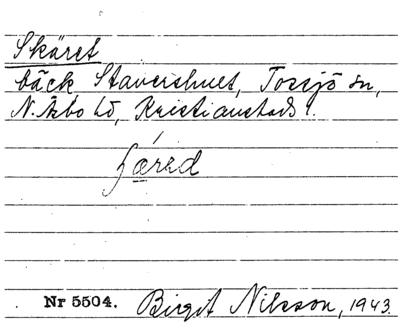 Skäret
bäck, Stavershult, Tossjö sn,
N. Åsbo hd, Kristianstads l.
Nr 5504. Birgit Nilsson, 1943.